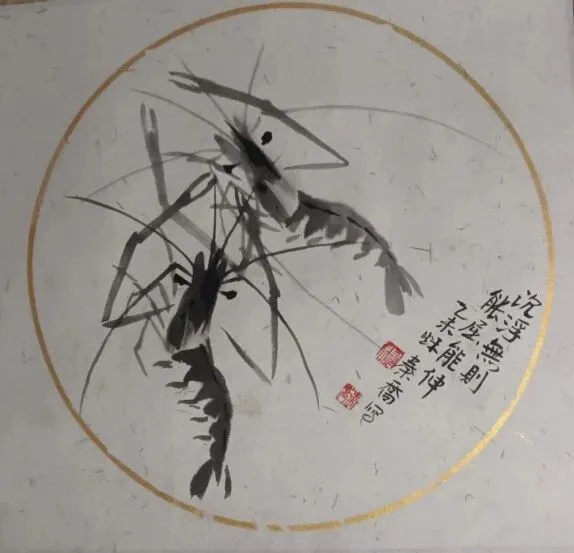 沉浮無則
能屈能伸
乙未秋秦喬寫